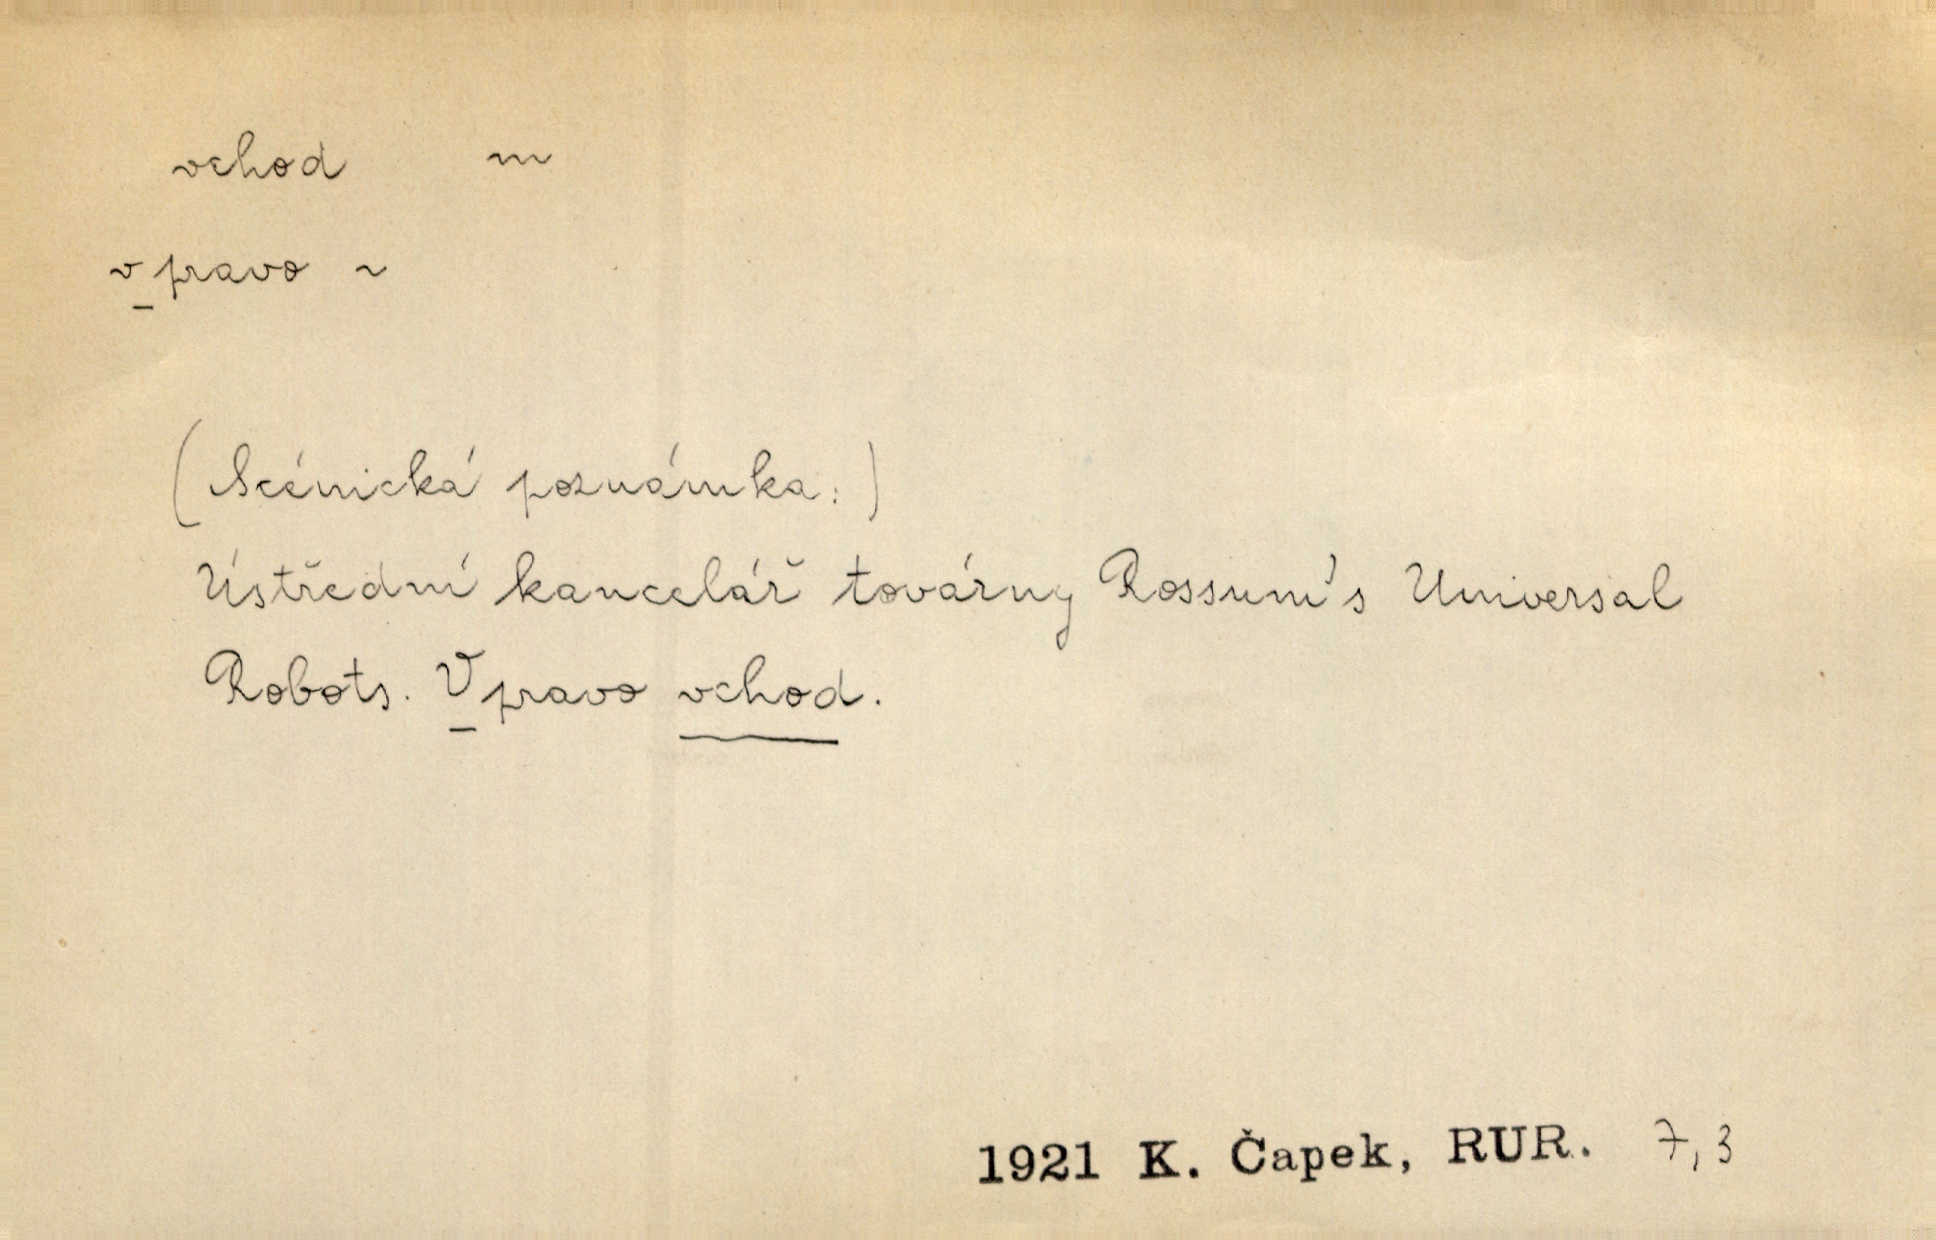 vchod m
v pravo ~
(Scénická poznámka:)
Ústřední kancelář továrny Rossum's Universal
Robots. V pravo vchod.
1921 K. Čapek, RUR. 7,3